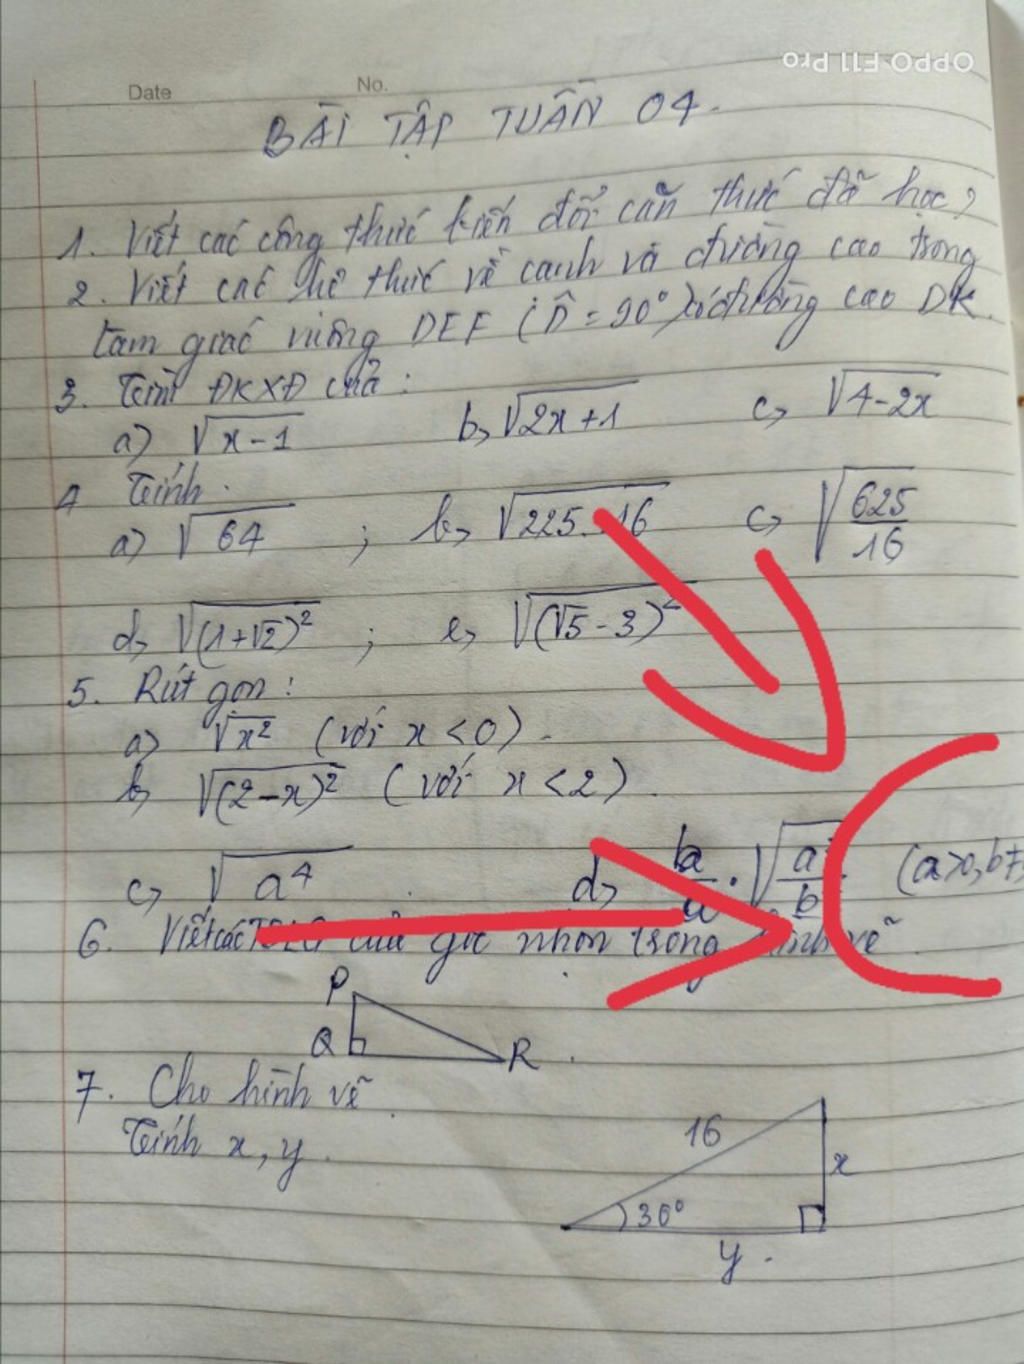 OPPO F11 Pro
Date No.
BÀI TẬP TUẦN 04.
1. Viết các công thức biến đổi căn thức đã học?
2. Viết các hệ thức về cạnh và đường cao trong
tam giác vuông DEF (D̂ = 90°) có đường cao DK.
3. Tìm ĐKXĐ của :
a) √(x-1) b, √(2x+1) c, √(4-2x)
4 Tính.
a) √64 ; b, √(225.16) c, √(625/16)
d, √((1+√2)²) ; e, √((√5-3)²)
5. Rút gọn :
a) √x² (với x < 0).
b, √((2-x)²) (với x < 2).
c, √a⁴ . d, (a>0, b≠
6. Viết các TSLG của góc nhọn trong hình vẽ
P
Q
R .
7. Cho hình vẽ.
Tính x, y.
16
x
30°
y.